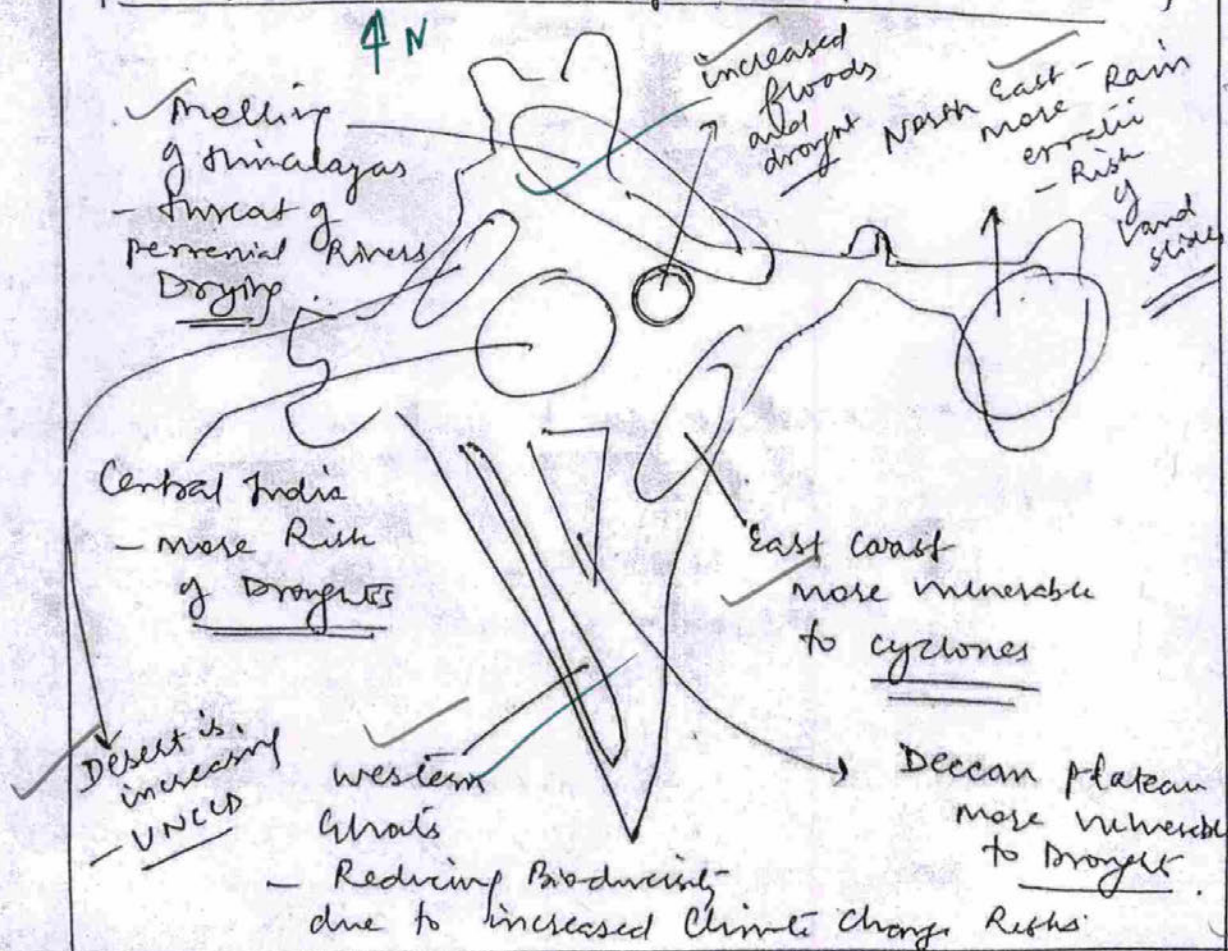 N
Melling
of Himalayas
- threat of
perrenial Rivers
Drying
increased
floods
and
drought
North East -
more Rain
erratic
- Risk
of
Land
slides
Central India
- more Risk
of Droughts
East Coast
more vulnerable
to cyclones
Desert is
increasing
- UNCCD
Western
Ghats
- Reducing Biodiversity
due to increased Climate Change Risks
Deccan plateau
more vulnerable
to Drought.